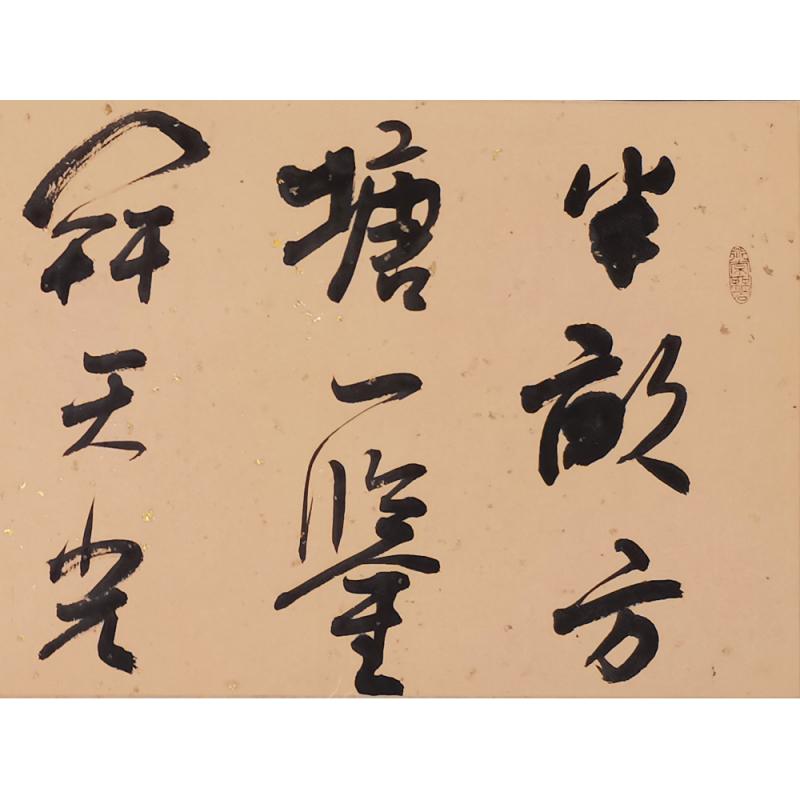 半畝方
塘一鑒
開天光